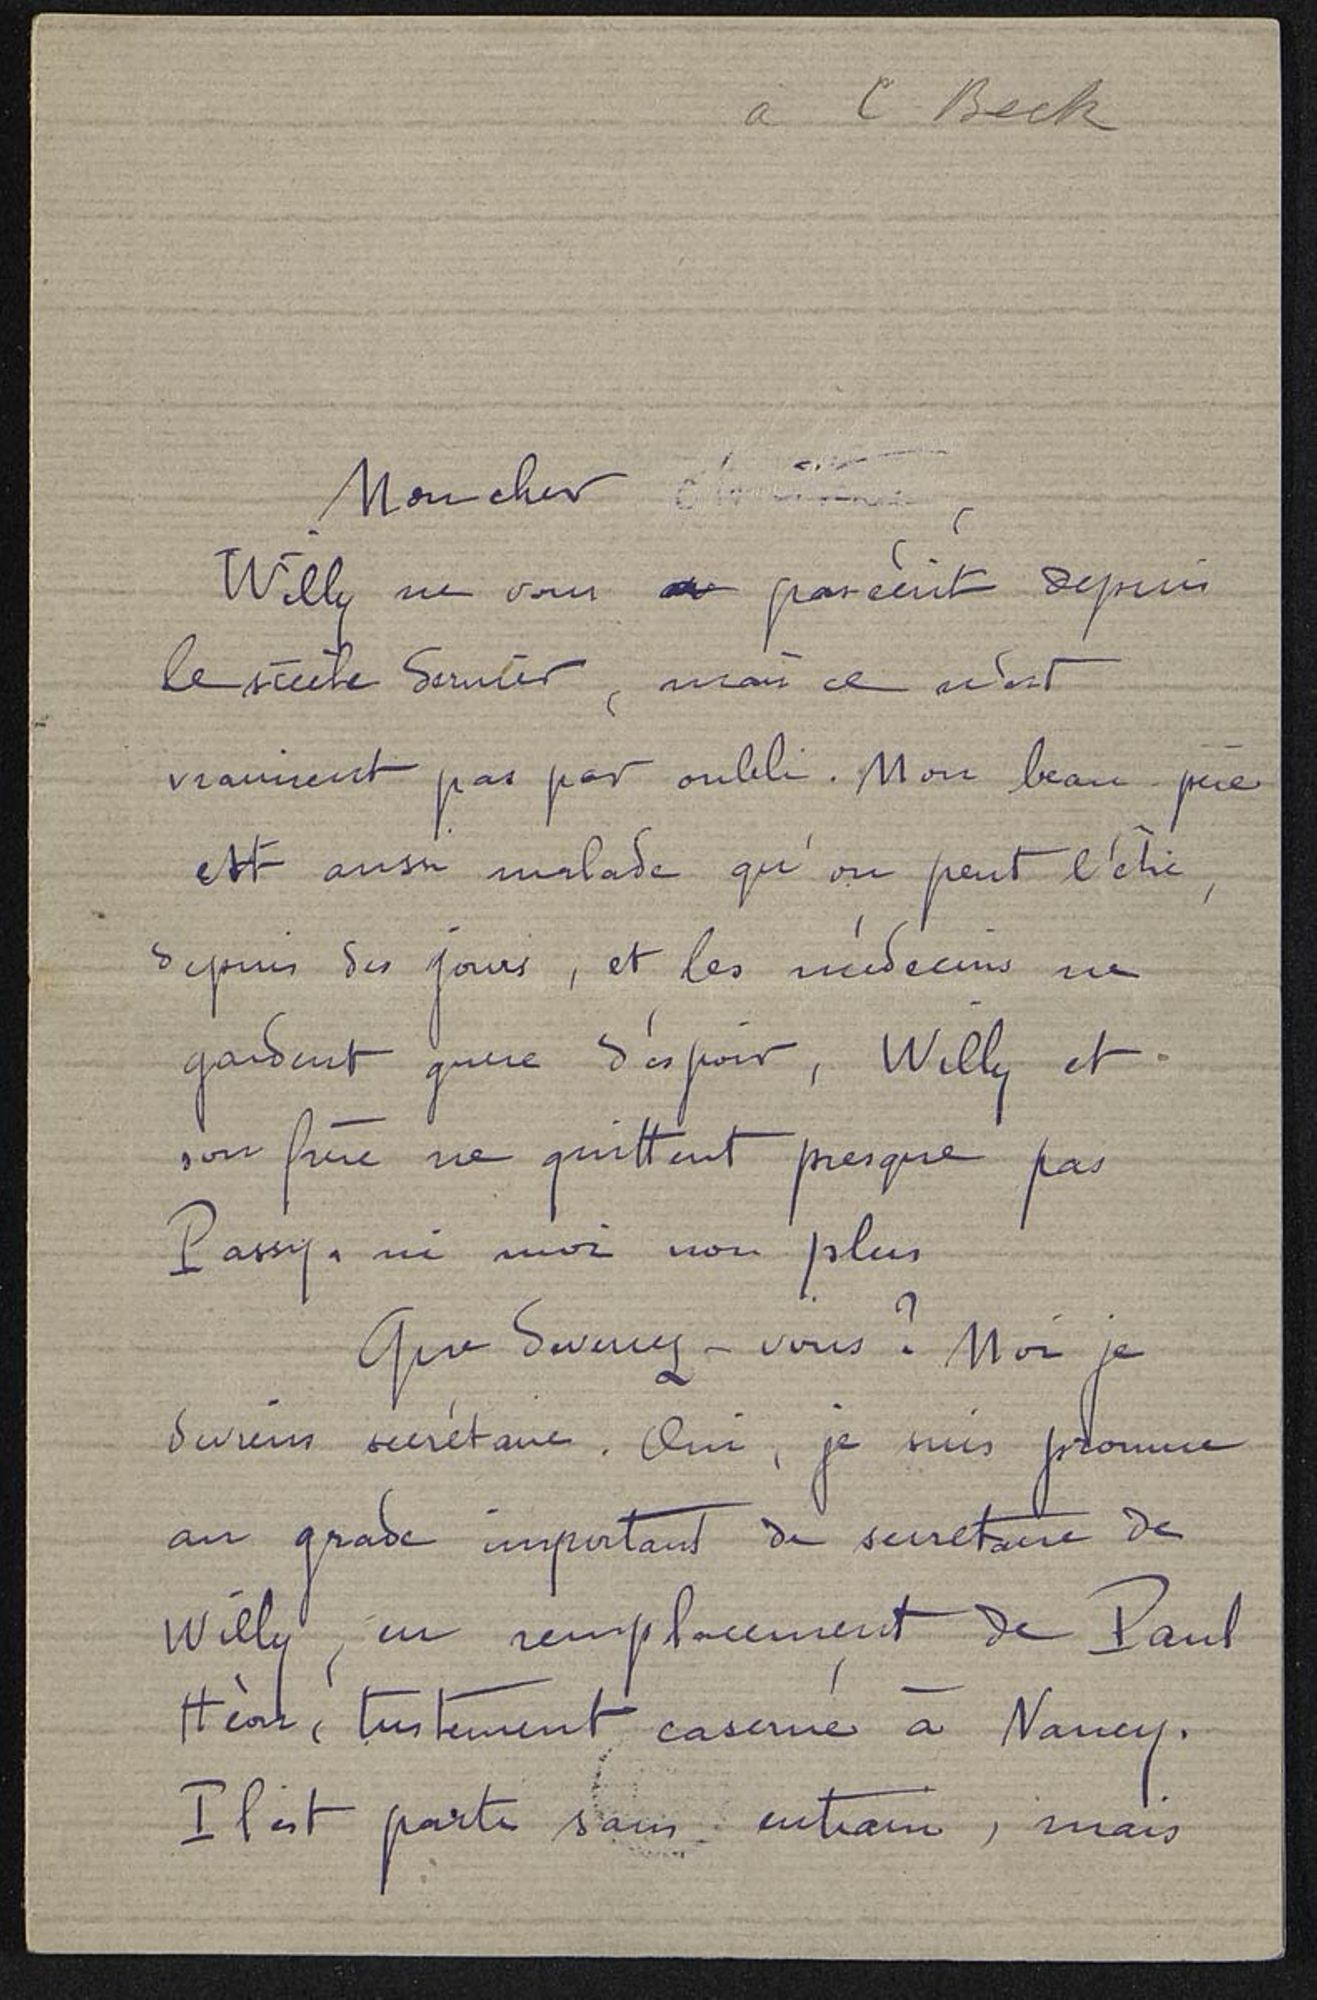 à C Beck
Mon cher
Willy ne vous a pas écrit depuis
le siècle dernier, mais ce n'est
vraiment pas par oubli. Mon beau père
est aussi malade qu'on peut l'être,
depuis des jours, et les médecins ne
gardent guère d'espoir, Willy et
son frère ne quittent presque pas
Passy. ni moi non plus
Que devenez-vous? Moi je
deviens secrétaire. Oui, je suis promue
au grade important de secrétaire de
Willy, en remplacement de Paul
Héon, tristement caserné à Nancy.
Il est parti sans entrain, mais